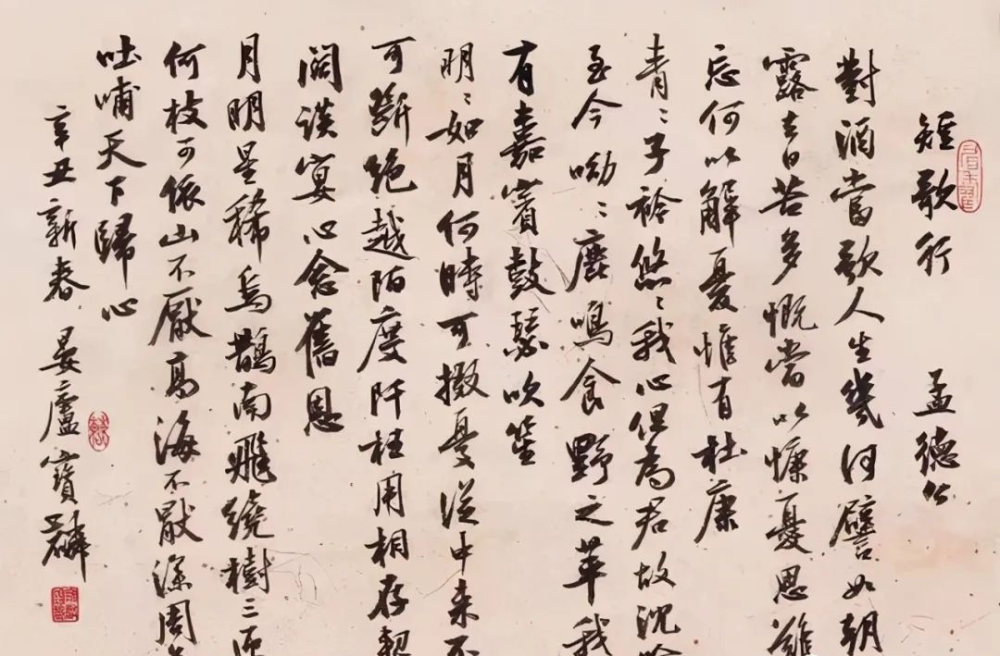 短歌行 孟德公
對酒當歌人生幾何譬如朝
露去日苦多慨當以慷憂思難
忘何以解憂惟有杜康
青〻子衿悠〻我心但為君故沈吟
至今呦〻鹿鳴食野之苹我
有嘉賓鼓瑟吹笙
明〻如月何時可掇憂從中來不
可斷絕越陌度阡枉用相存契
闊談宴心念舊恩
月明星稀烏鵲南飛繞樹三匝
何枝可依山不厭高海不厭深周
吐哺天下歸心
辛丑新春 晏廬寶